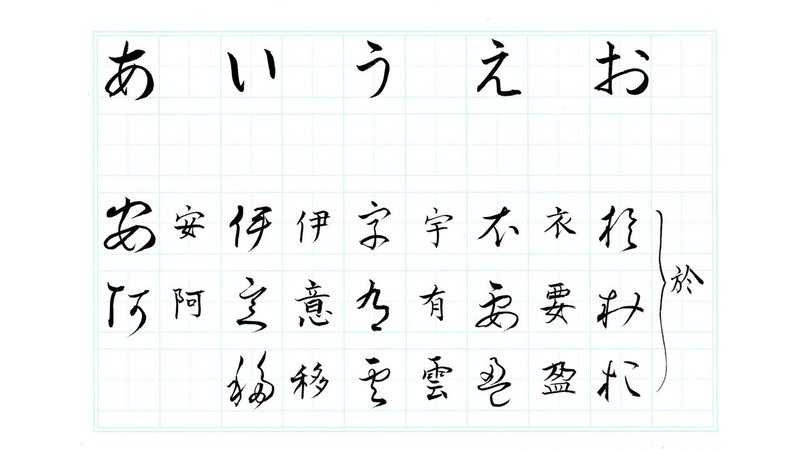 あ い う え お
安 安 伊 伊 宇 宇 衣 衣 於
阿 阿 意 意 有 有 要 要 於 於
移 移 雲 雲 盈 盈 於